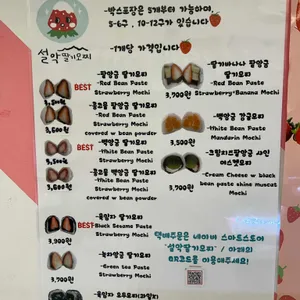 -박스포장은 5개부터 가능하며,
5-6구, 10-12구가 있습니다
-1개당 가격입니다
설악 딸기모찌
BEST
-팥앙금 딸기모찌
-Red Bean Paste
Strawberry Mochi
3,500원
-콩고물 팥앙금 딸기모찌
-Red Bean Paste
Strawberry Mochi
covered w bean powder
3,600원
BEST
-백앙금 딸기모찌
-White Bean Paste
Strawberry Mochi
3,500원
-콩고물 백앙금 딸기모찌
-White Bean Paste
Strawberry Mochi
covered w bean powder
3,600원
BEST
-흑임자 딸기모찌
-Black Sesame Paste
Strawberry Mochi
3,900원
-녹차앙금 딸기모찌
-Green tea Paste
Strawberry Mochi
3,700원
-딸기바나나 팥앙금
딸기모찌
-Red Bean Paste
Strawberry+Banana Mochi
3,900원
-백앙금 감귤모찌
-White Bean Paste
Mandarin Mochi
3,500원
-크림치즈팥앙금 샤인
머스켓모찌
-Cream Cheese w black
bean paste shine muscat
Mochi
3,700원
택배주문은 네이버 스마트스토어
'설악딸기모찌' / 아래의
QR코드를 이용해주세요!